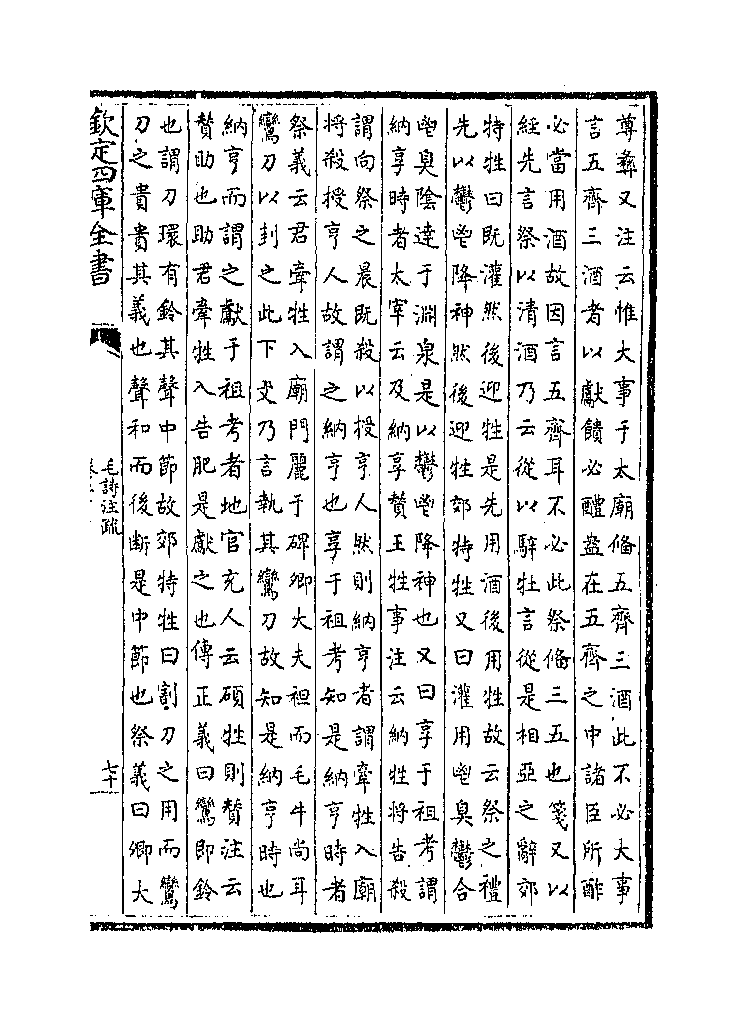 尊彝又注云惟大事于太廟備五齊三酒此不必大事
言五齊三酒者以獻饋必醴盎在五齊之中諸臣所酢
必當用酒故因言五齊耳不必此祭備三五也箋又以
經先言祭以清酒乃云從以騂牡言從是相亞之辭郊
特牲曰既灌然後迎牲是先用酒後用牲故云祭之禮
先以鬱鬯降神然後迎牲郊特牲又曰灌用鬯臭鬱合
鬯臭陰達于淵泉是以鬱鬯降神也又曰享于祖考謂
納享時者太宰云及納享贊王牲事注云納牲將告殺
謂向祭之晨既殺以授亨人然則納亨者謂牽牲入廟
將殺授亨人故謂之納亨也享于祖考知是納亨時者
祭義云君牽牲入廟門麗于碑卿大夫袒而毛牛尚耳
鸞刀以刲之此下文乃言執其鸞刀故知是納亨時也
納亨而謂之獻于祖考者地官充人云碩牲則贊注云
贊助也助君牽牲入告肥是獻之也傳正義曰鸞即鈴
也謂刀環有鈴其聲中節故郊特牲曰割刀之用而鸞
刀之貴貴其義也聲和而後斷是中節也祭義曰卿大
欽定四庫全書
毛詩注疏
七十